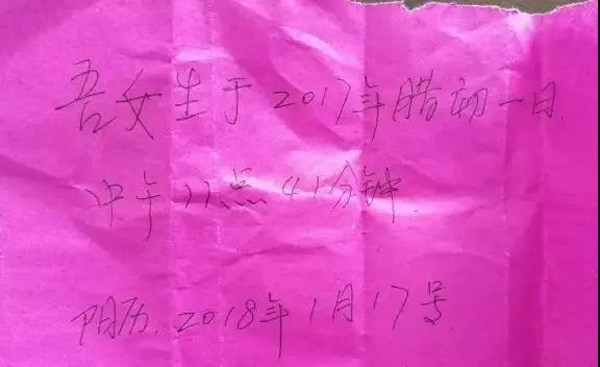 吾女生于2017年腊初一日.
中午11点41分钟.
阳历.2018年1月17号